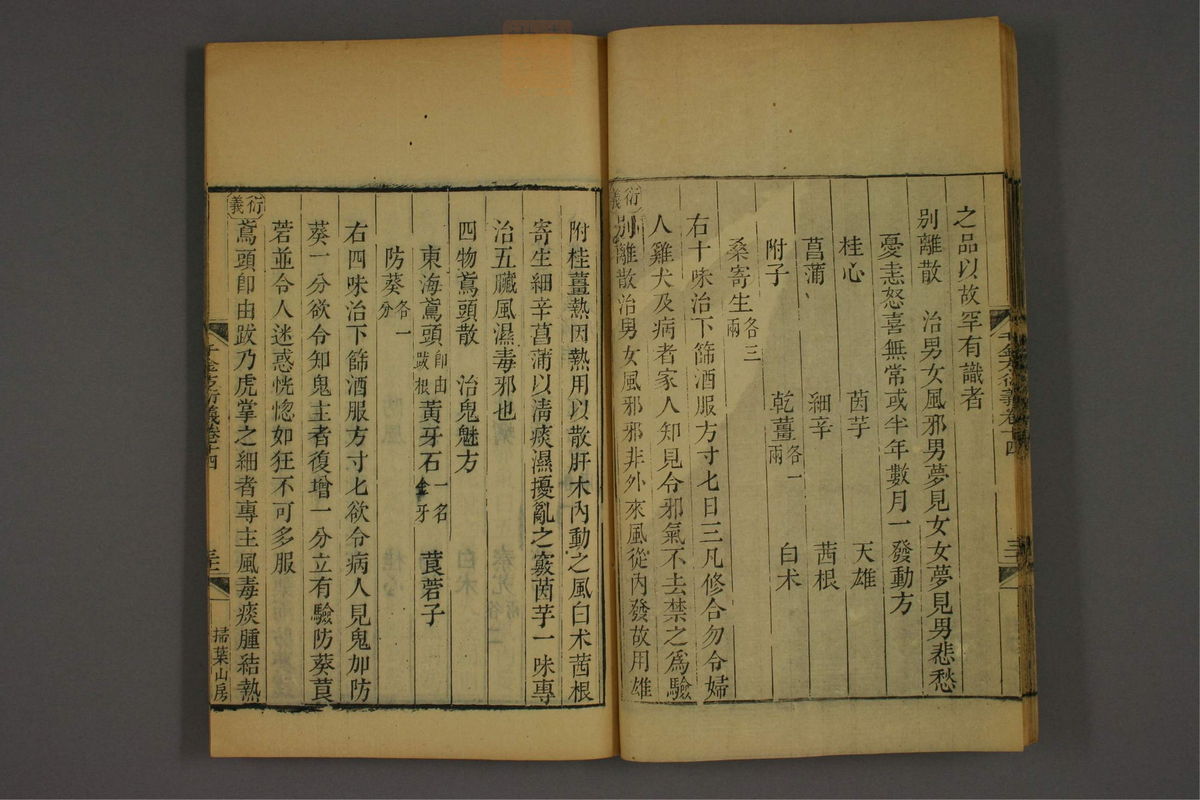 之品以故罕有識者
別離散　治男女風邪男夢見女女夢見男悲愁
憂恚怒喜無常或半年數月一發動方
桂心　茵芋　天雄
菖蒲　細辛　茜根
附子　乾薑各一兩　白术
桑寄生各三兩
右十味治下篩酒服方寸匕日三凡修合勿令婦
人雞犬及病者家人知見令邪氣不去禁之爲驗
衍義
別離散治男女風邪邪非外來風從內發故用雄
附桂薑熱因熱用以散肝木內動之風白术茜根
寄生細辛菖蒲以清痰濕擾亂之竅茵芋一味專
治五臟風濕毒邪也
四物鳶頭散　治鬼魅方
東海鳶頭卽由跋根　黃牙石一名金牙　莨菪子
防葵各一分
右四味治下篩酒服方寸匕欲令病人見鬼加防
葵一分欲令知鬼主者復增一分立有驗防葵莨
菪並令人迷惑恍惚如狂不可多服
衍義
鳶頭卽由跋乃虎掌之細者專主風毒痰腫結熱
千金方衍義卷十四
掃葉山房